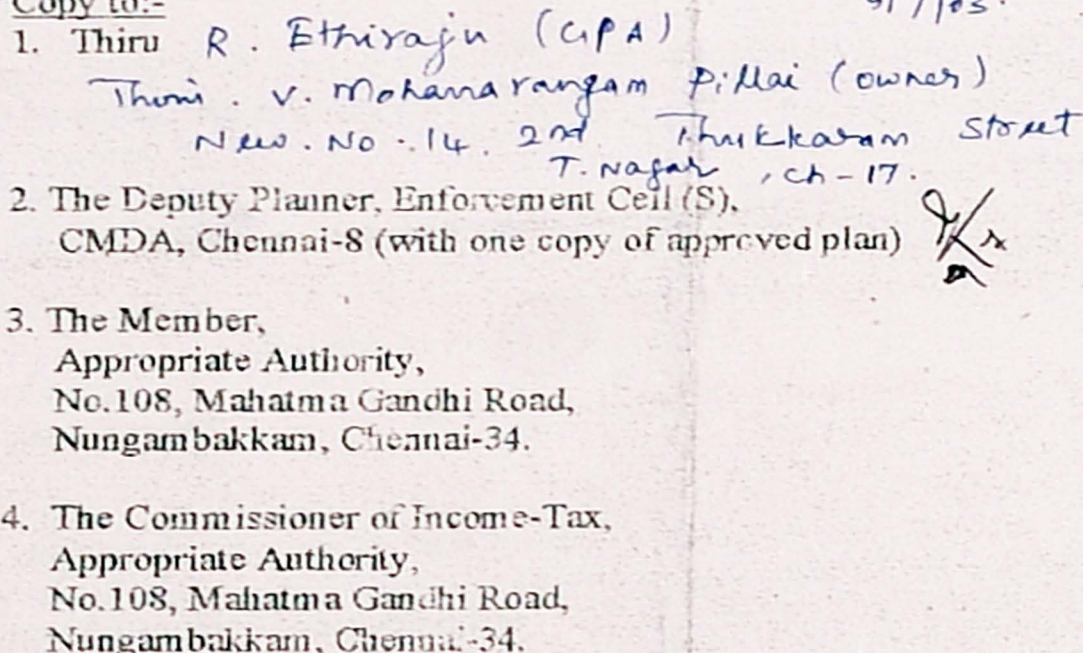 Copy to:-
1. Thiru R. Ethiraju (GPA)
Thiru. V. Mohanarangam Pillai (owner)
New. No. 14. 2nd Thukkaram Street
T. Nagar, ch-17.
2. The Deputy Planner, Enforcement Cell (S),
CMDA, Chennai-8 (with one copy of approved plan)
3. The Member,
Appropriate Authority,
No.108, Mahatma Gandhi Road,
Nungambakkam, Chennai-34.
4. The Commissioner of Income-Tax,
Appropriate Authority,
No.108, Mahatma Gandhi Road,
Nungambakkam, Chennai-34.